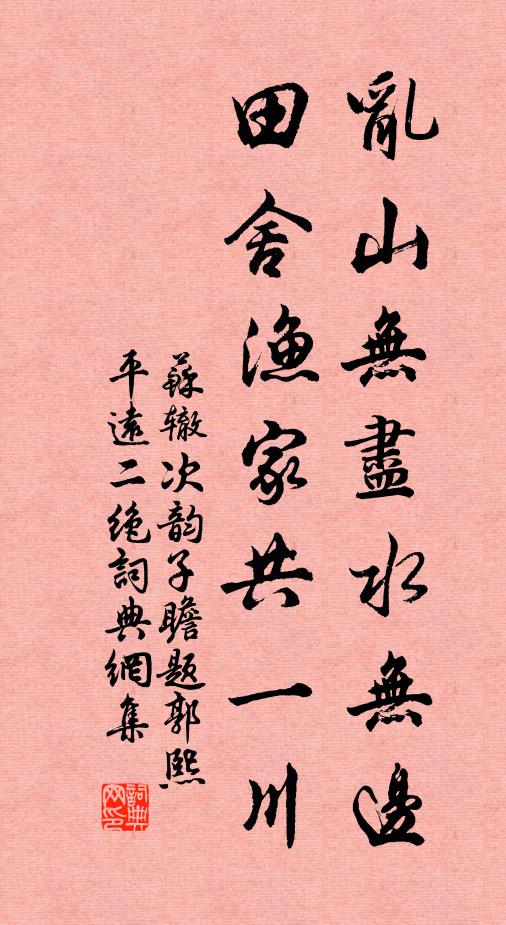 亂山無盡水無邊
田舍漁家共一川
蘇辙次韵子瞻題郭熙
平遠二絶詞典網集
詞典网印